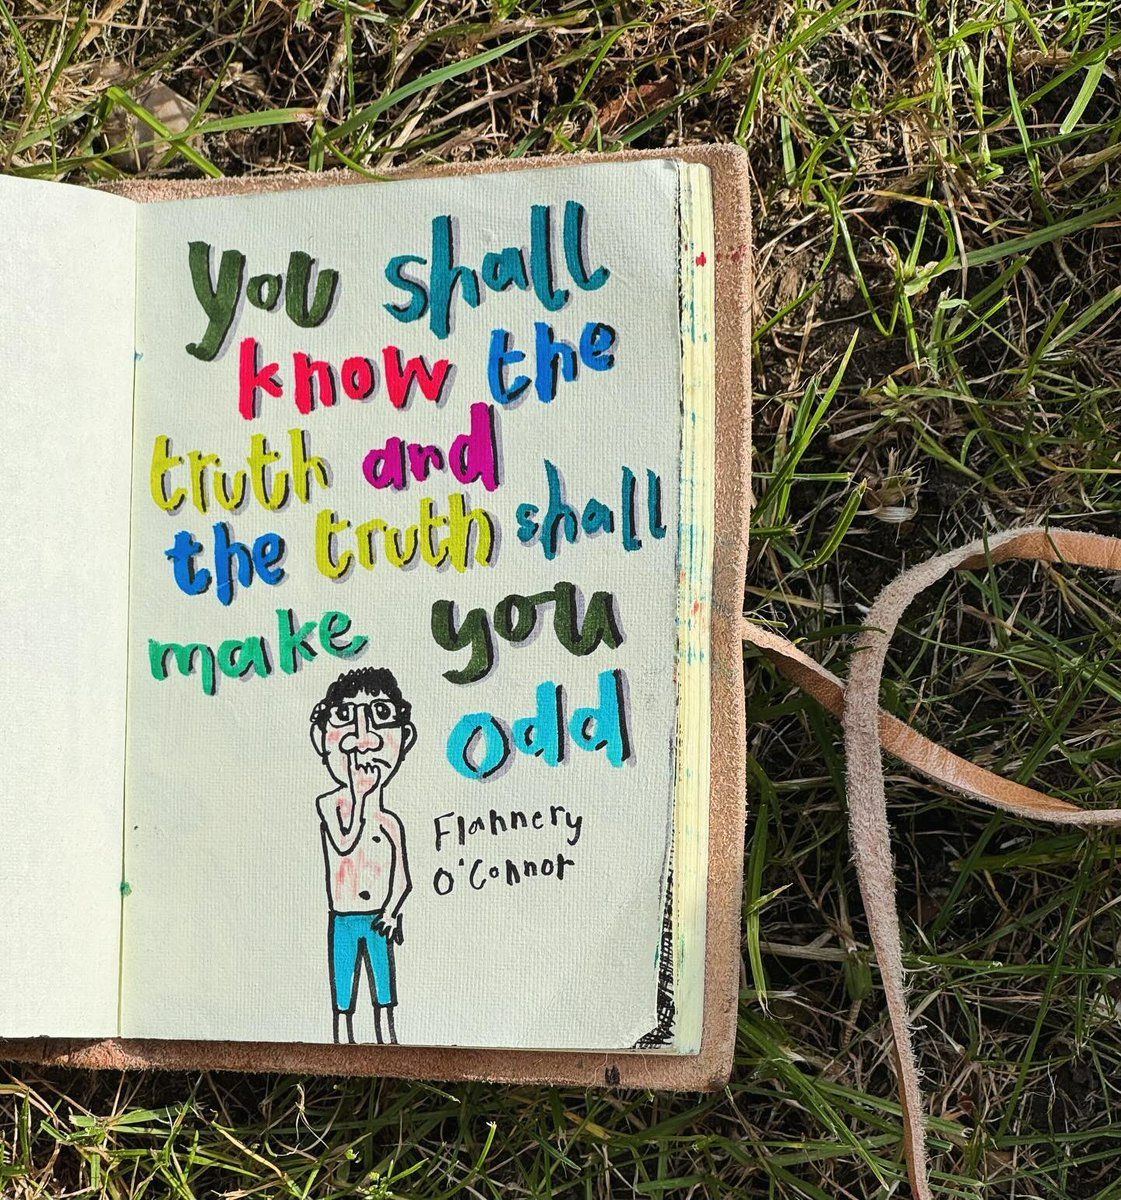 you shall
know the
truth and
the truth shall
make you
odd
Flannery
O'Connor